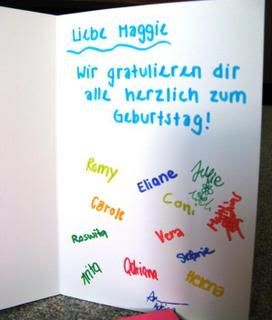 Liebe Maggie
Wir gratulieren dir
alle herzlich zum
Geburtstag!
Romy
Eliane
Julie
Carole
Coni
Roswita
Vera
Stefanie
Anita
Adriana
Helena